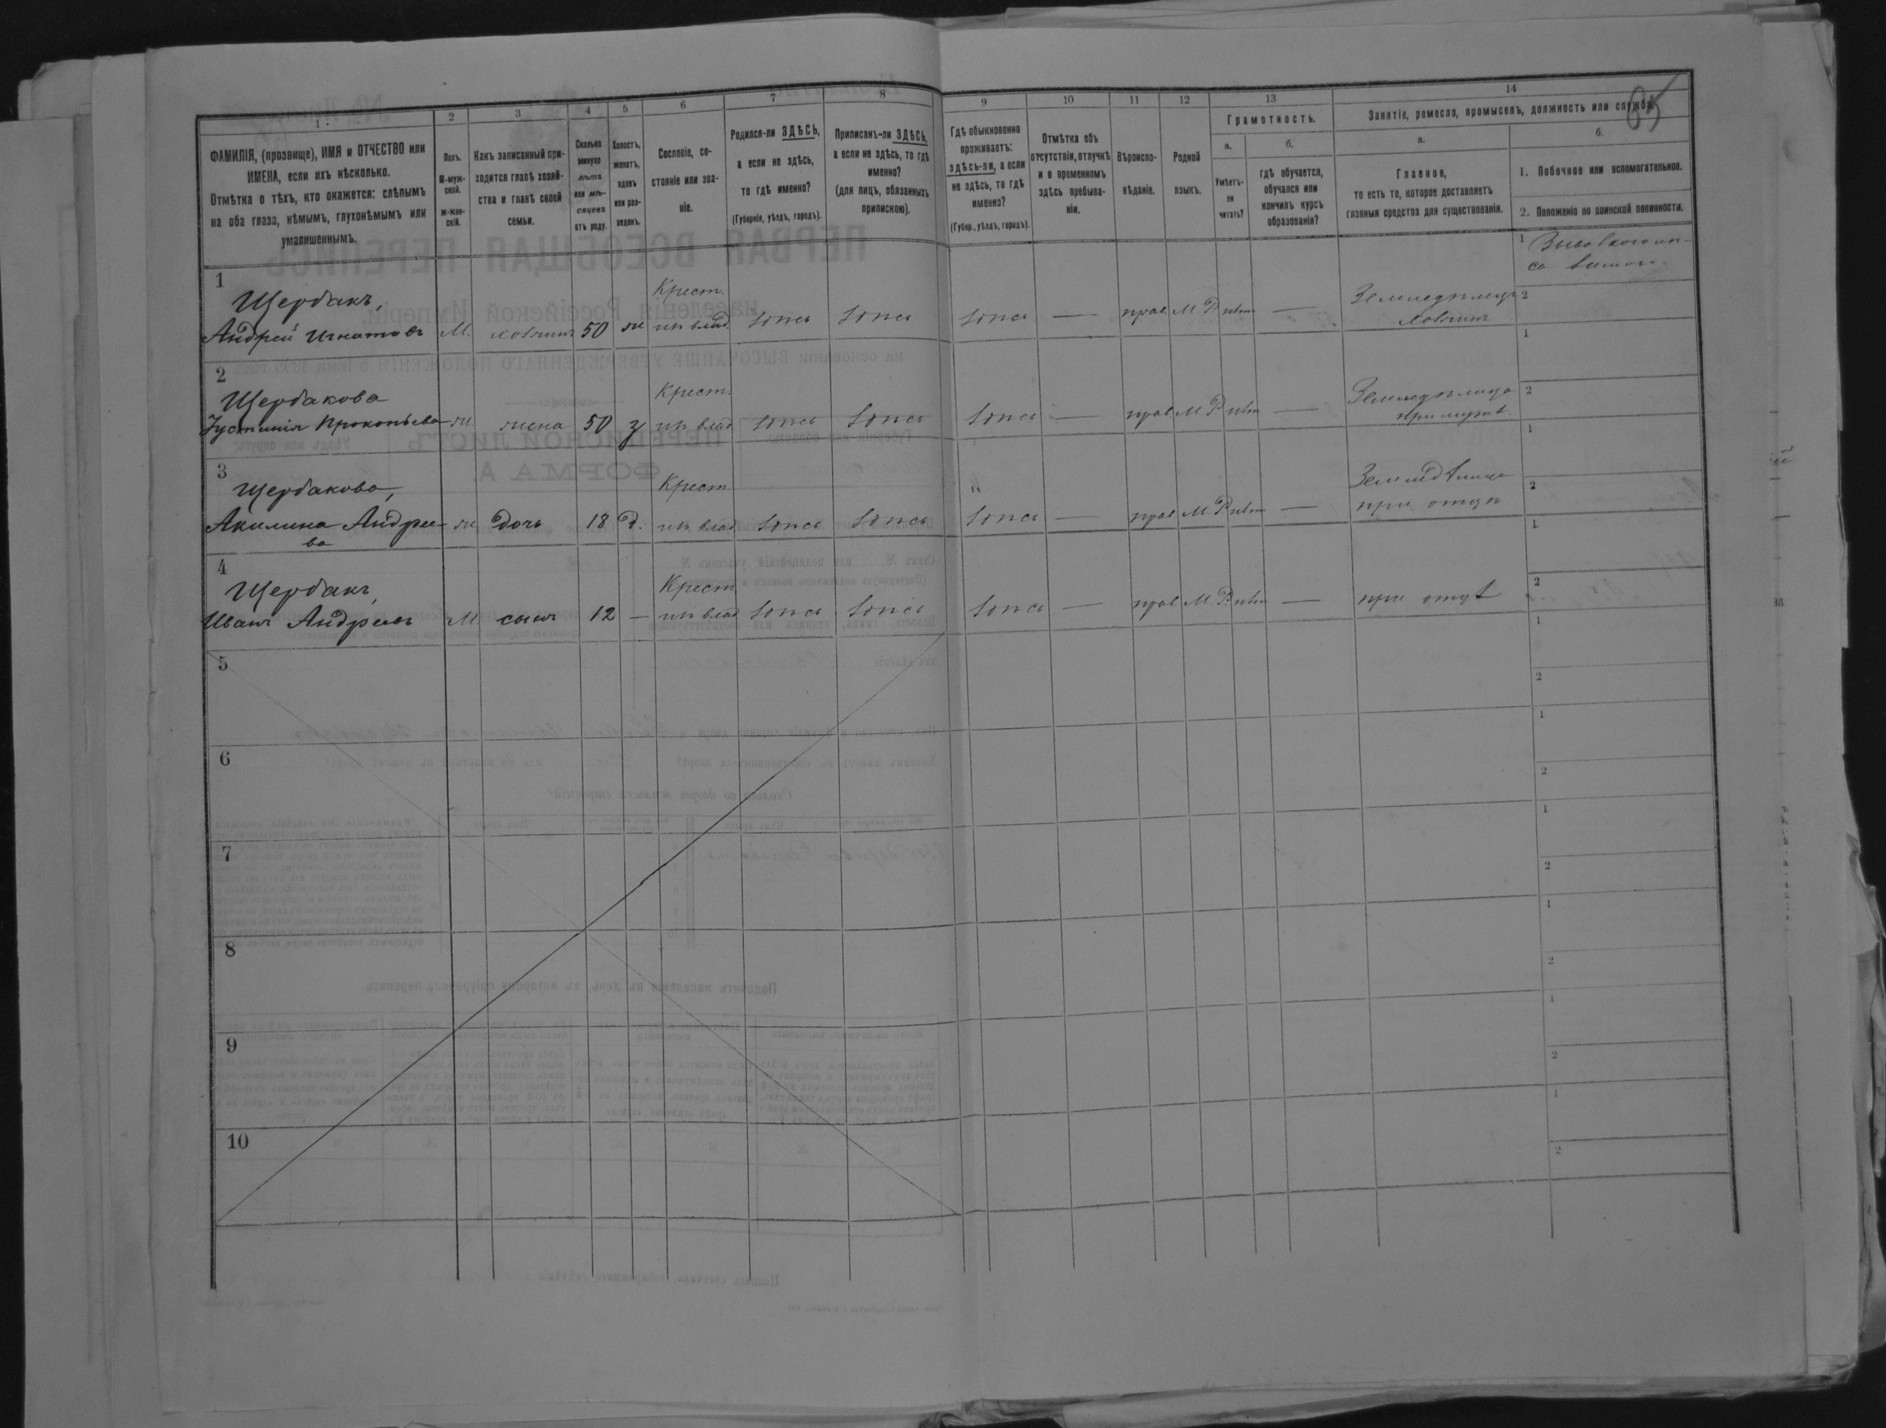 65
1. 2 3 4 5 6 7 8 9 10 11 12 13 14
ФАМИЛІЯ, (прозвище), ИМЯ и ОТЧЕСТВО или
ИМЕНА, если ихъ нѣсколько.
Отмѣтка о тѣхъ, кто окажется: слѣпымъ
на оба глаза, нѣмымъ, глухонѣмымъ или
умалишеннымъ.
Полъ.
М-муж-
ской.
ж-жен-
скій.
Какъ записанный при-
ходится главѣ хозяй-
ства и главѣ своей
семьи.
Сколько
минуло
лѣтъ
или мѣ-
сяцевъ
отъ роду.
Холостъ,
женатъ,
вдовъ
или раз-
веденъ.
Сословіе, со-
стояніе или зва-
ніе.
Родился-ли ЗДѢСЬ,
а если не здѣсь,
то гдѣ именно?
(Губернія, уѣздъ, городъ).
Приписанъ-ли ЗДѢСЬ,
а если не здѣсь, то гдѣ
именно?
(для лицъ, обязанныхъ
припискою).
Гдѣ обыкновенно
проживаетъ:
здѣсь-ли, а если
не здѣсь, то гдѣ
именно?
(Губер., уѣздъ, городъ).
Отмѣтка объ
отсутствіи, отлучкѣ
и о временномъ
здѣсь пребыва-
ніи.
Вѣроиспо-
вѣданіе.
Родной
языкъ.
Грамотность.
а.
Умѣетъ-
ли
читать?
б.
гдѣ обучается,
обучался или
кончилъ курсъ
образованія?
Занятіе, ремесло, промыселъ, должность или служба.
а.
Главное,
то есть то, которое доставляетъ
главныя средства для существованія.
б.
1. Побочное или вспомогательное.
2. Положеніе по воинской повинности.
1
Щербакъ,
Андрей Игнатовъ М. хозяинъ 50 ж Крест.
из влад здѣсь здѣсь здѣсь — прав М.Р нѣт — Земледѣлецъ
хозяинъ
1
2
2
Щербакова
Устинія Прокопьева ж жена 50 з Крест.
из влад здѣсь здѣсь здѣсь — прав М.Р нѣт — Земледѣлица
при мужѣ
1
2
3
Щербакова,
Акилина Андрее-
ва ж Дочь 18 Д. Крест.
из влад здѣсь здѣсь здѣсь — прав М.Р нѣт — Земледѣлица
при отцѣ
1
2
4
Щербакъ,
Иванъ Андреевъ М сынъ 12 — Крест
из влад здѣсь здѣсь здѣсь — прав М.Р нѣт — при отцѣ
1
2
5
1
2
6
1
2
7
1
2
8
1
2
9
1
2
10
1
2